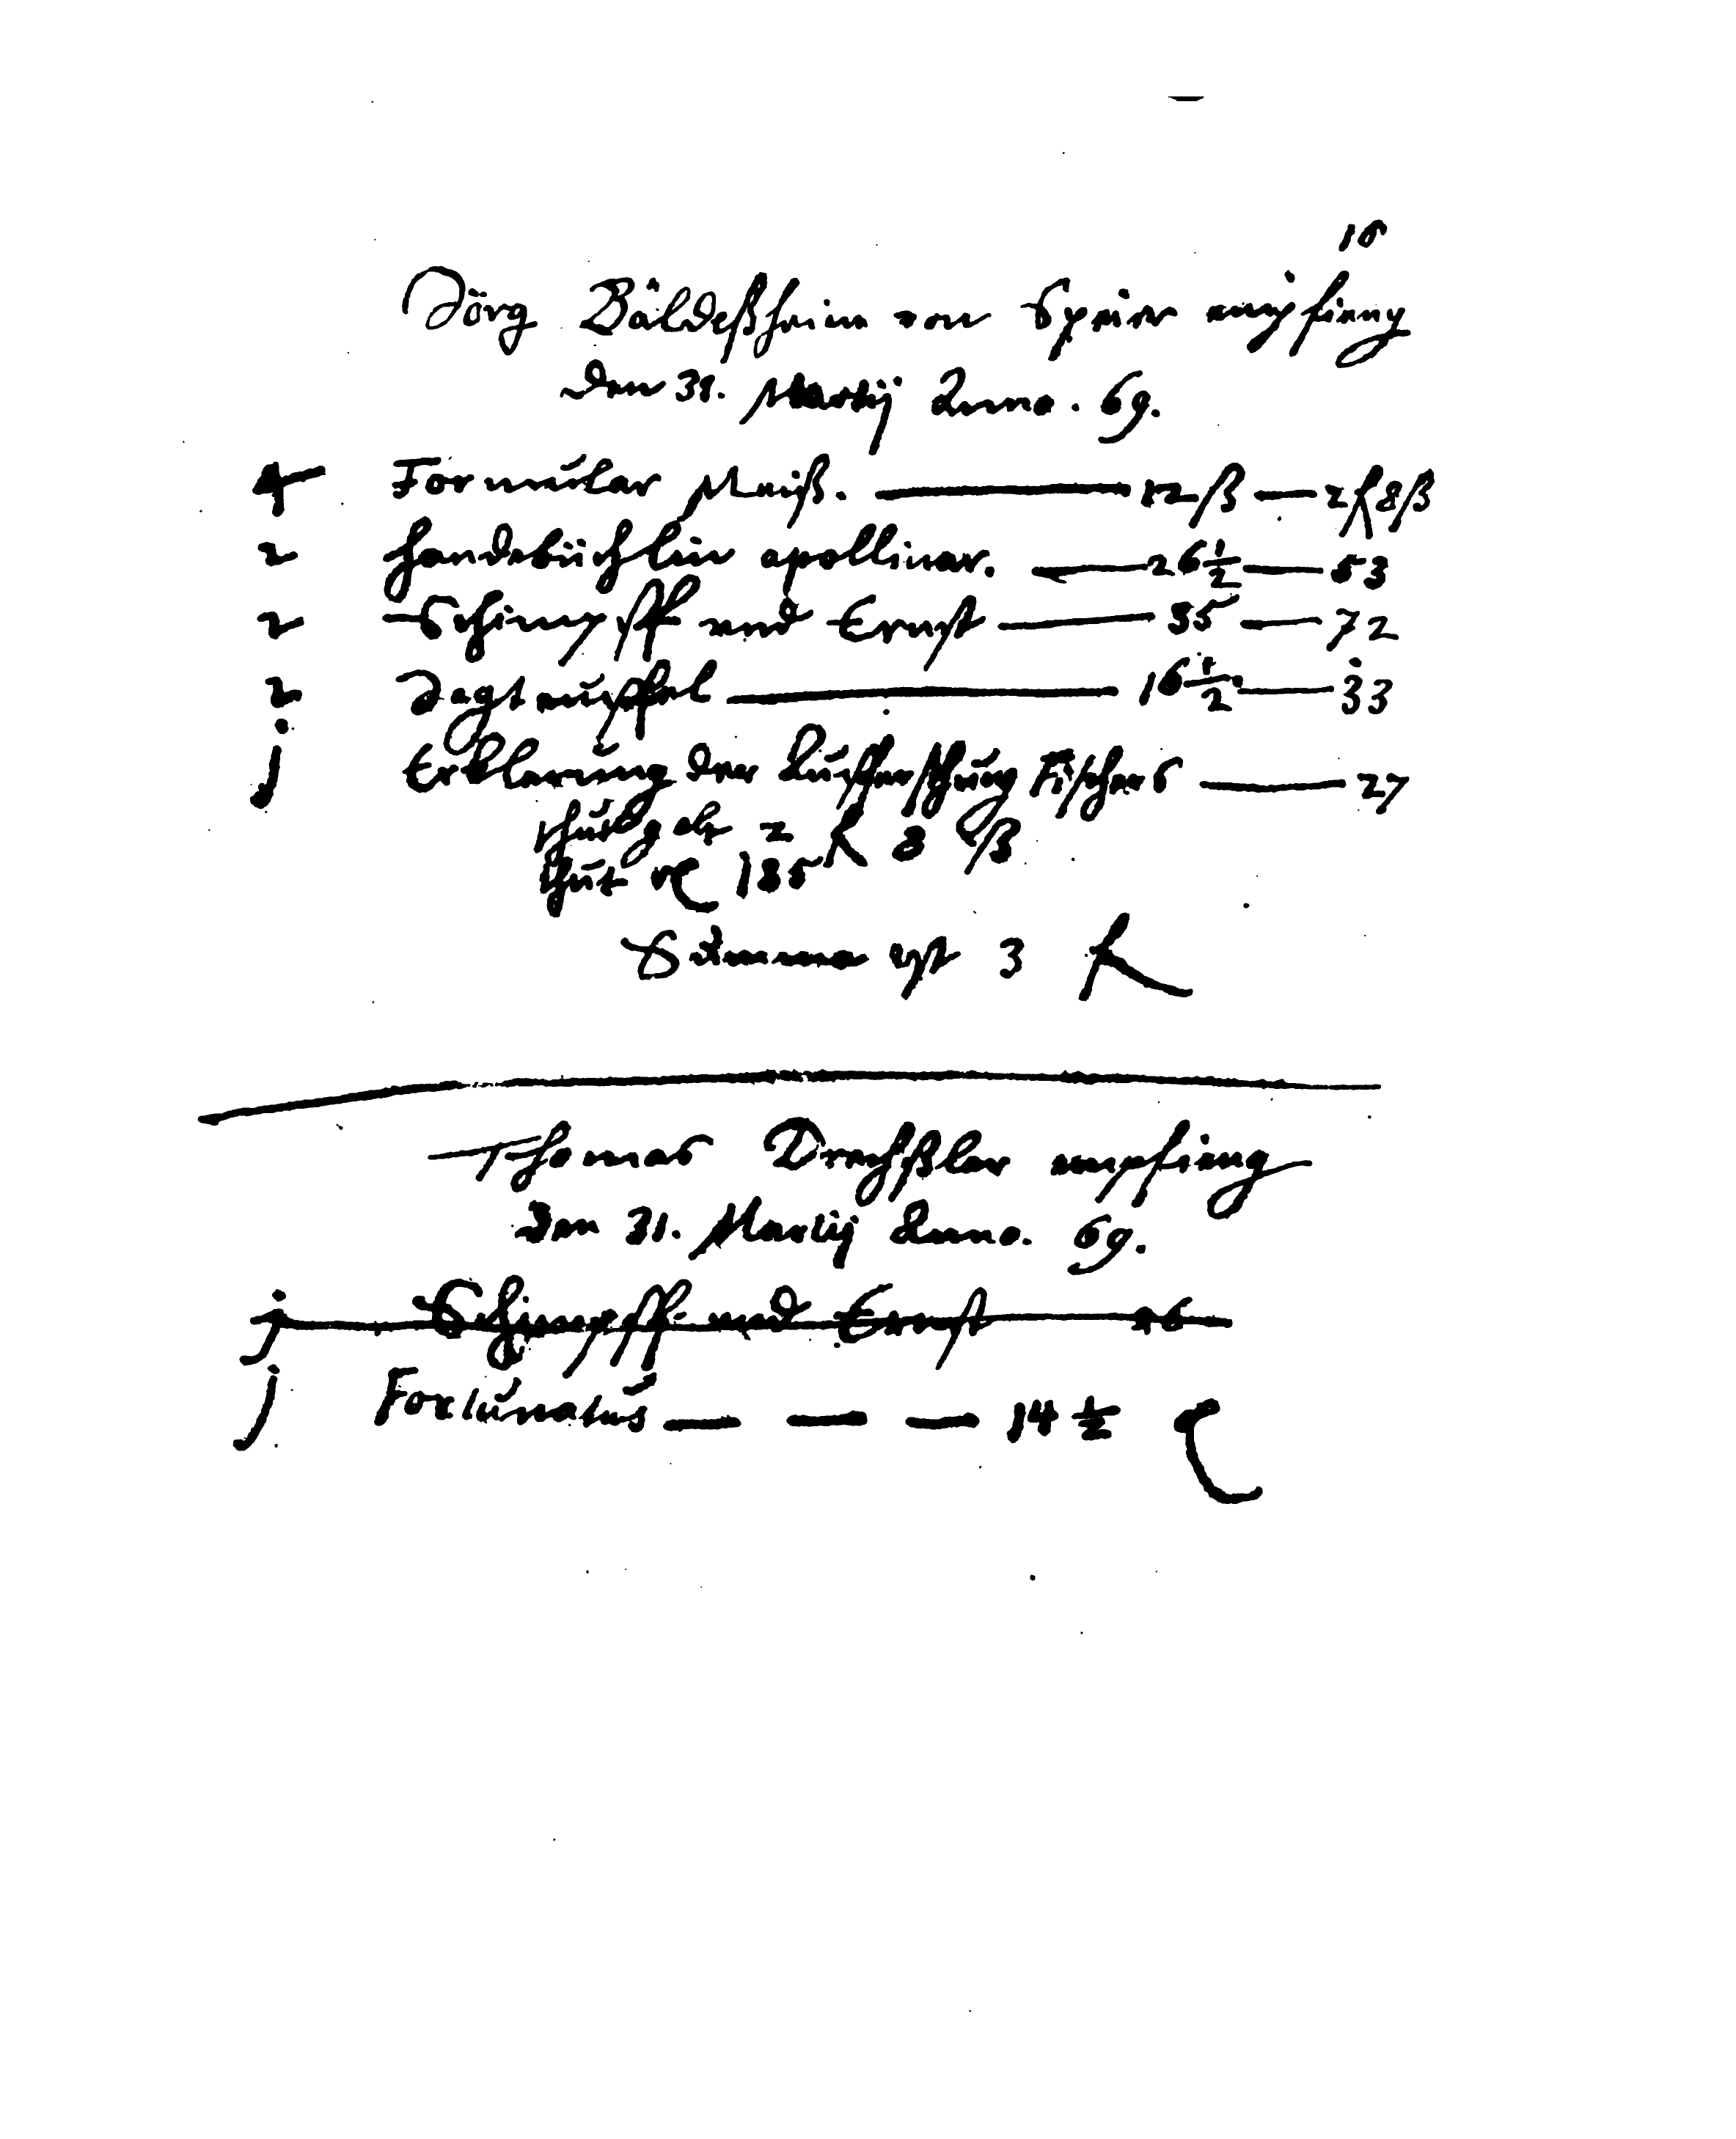 18
Jörg Bäldeßheim von Speier empfieng
den 31. Martij Anno. 69.
4 Formular Meiß. — 12 ß — 2 f 8 ß
2 Handtbüchlin apollinar. — 26 1/2 — 53
2 Schimpff und Ernst — 35 — 72
2 Jagteüffel — 16 1/2 — 33
j Erklerung der Fischers — 27
thut gelt 2 f 8 ß
thut 185
Summa ist 3 f
Thomas Drechßler empfieng
den 31. Martij Anno. 69.
j Schimpff und Ernst 26
j Fortunatus — — — 14 1/2